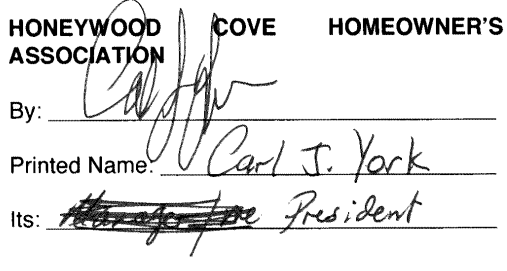 HONEYWOOD COVE HOMEOWNER'S
ASSOCIATION
By:
Printed Name: Carl J. York
Its: President